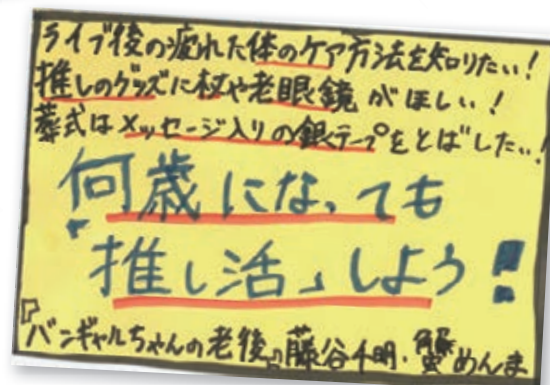 ライブ後の疲れた体のケア方法を知りたい!
推しのグッズに杖や老眼鏡がほしい!
葬式はメッセージ入りの銀テープをとばしたい!
何歳になっても
「推し活」しよう!!
『バンギャルちゃんの老後』藤谷千明・蟹めんま